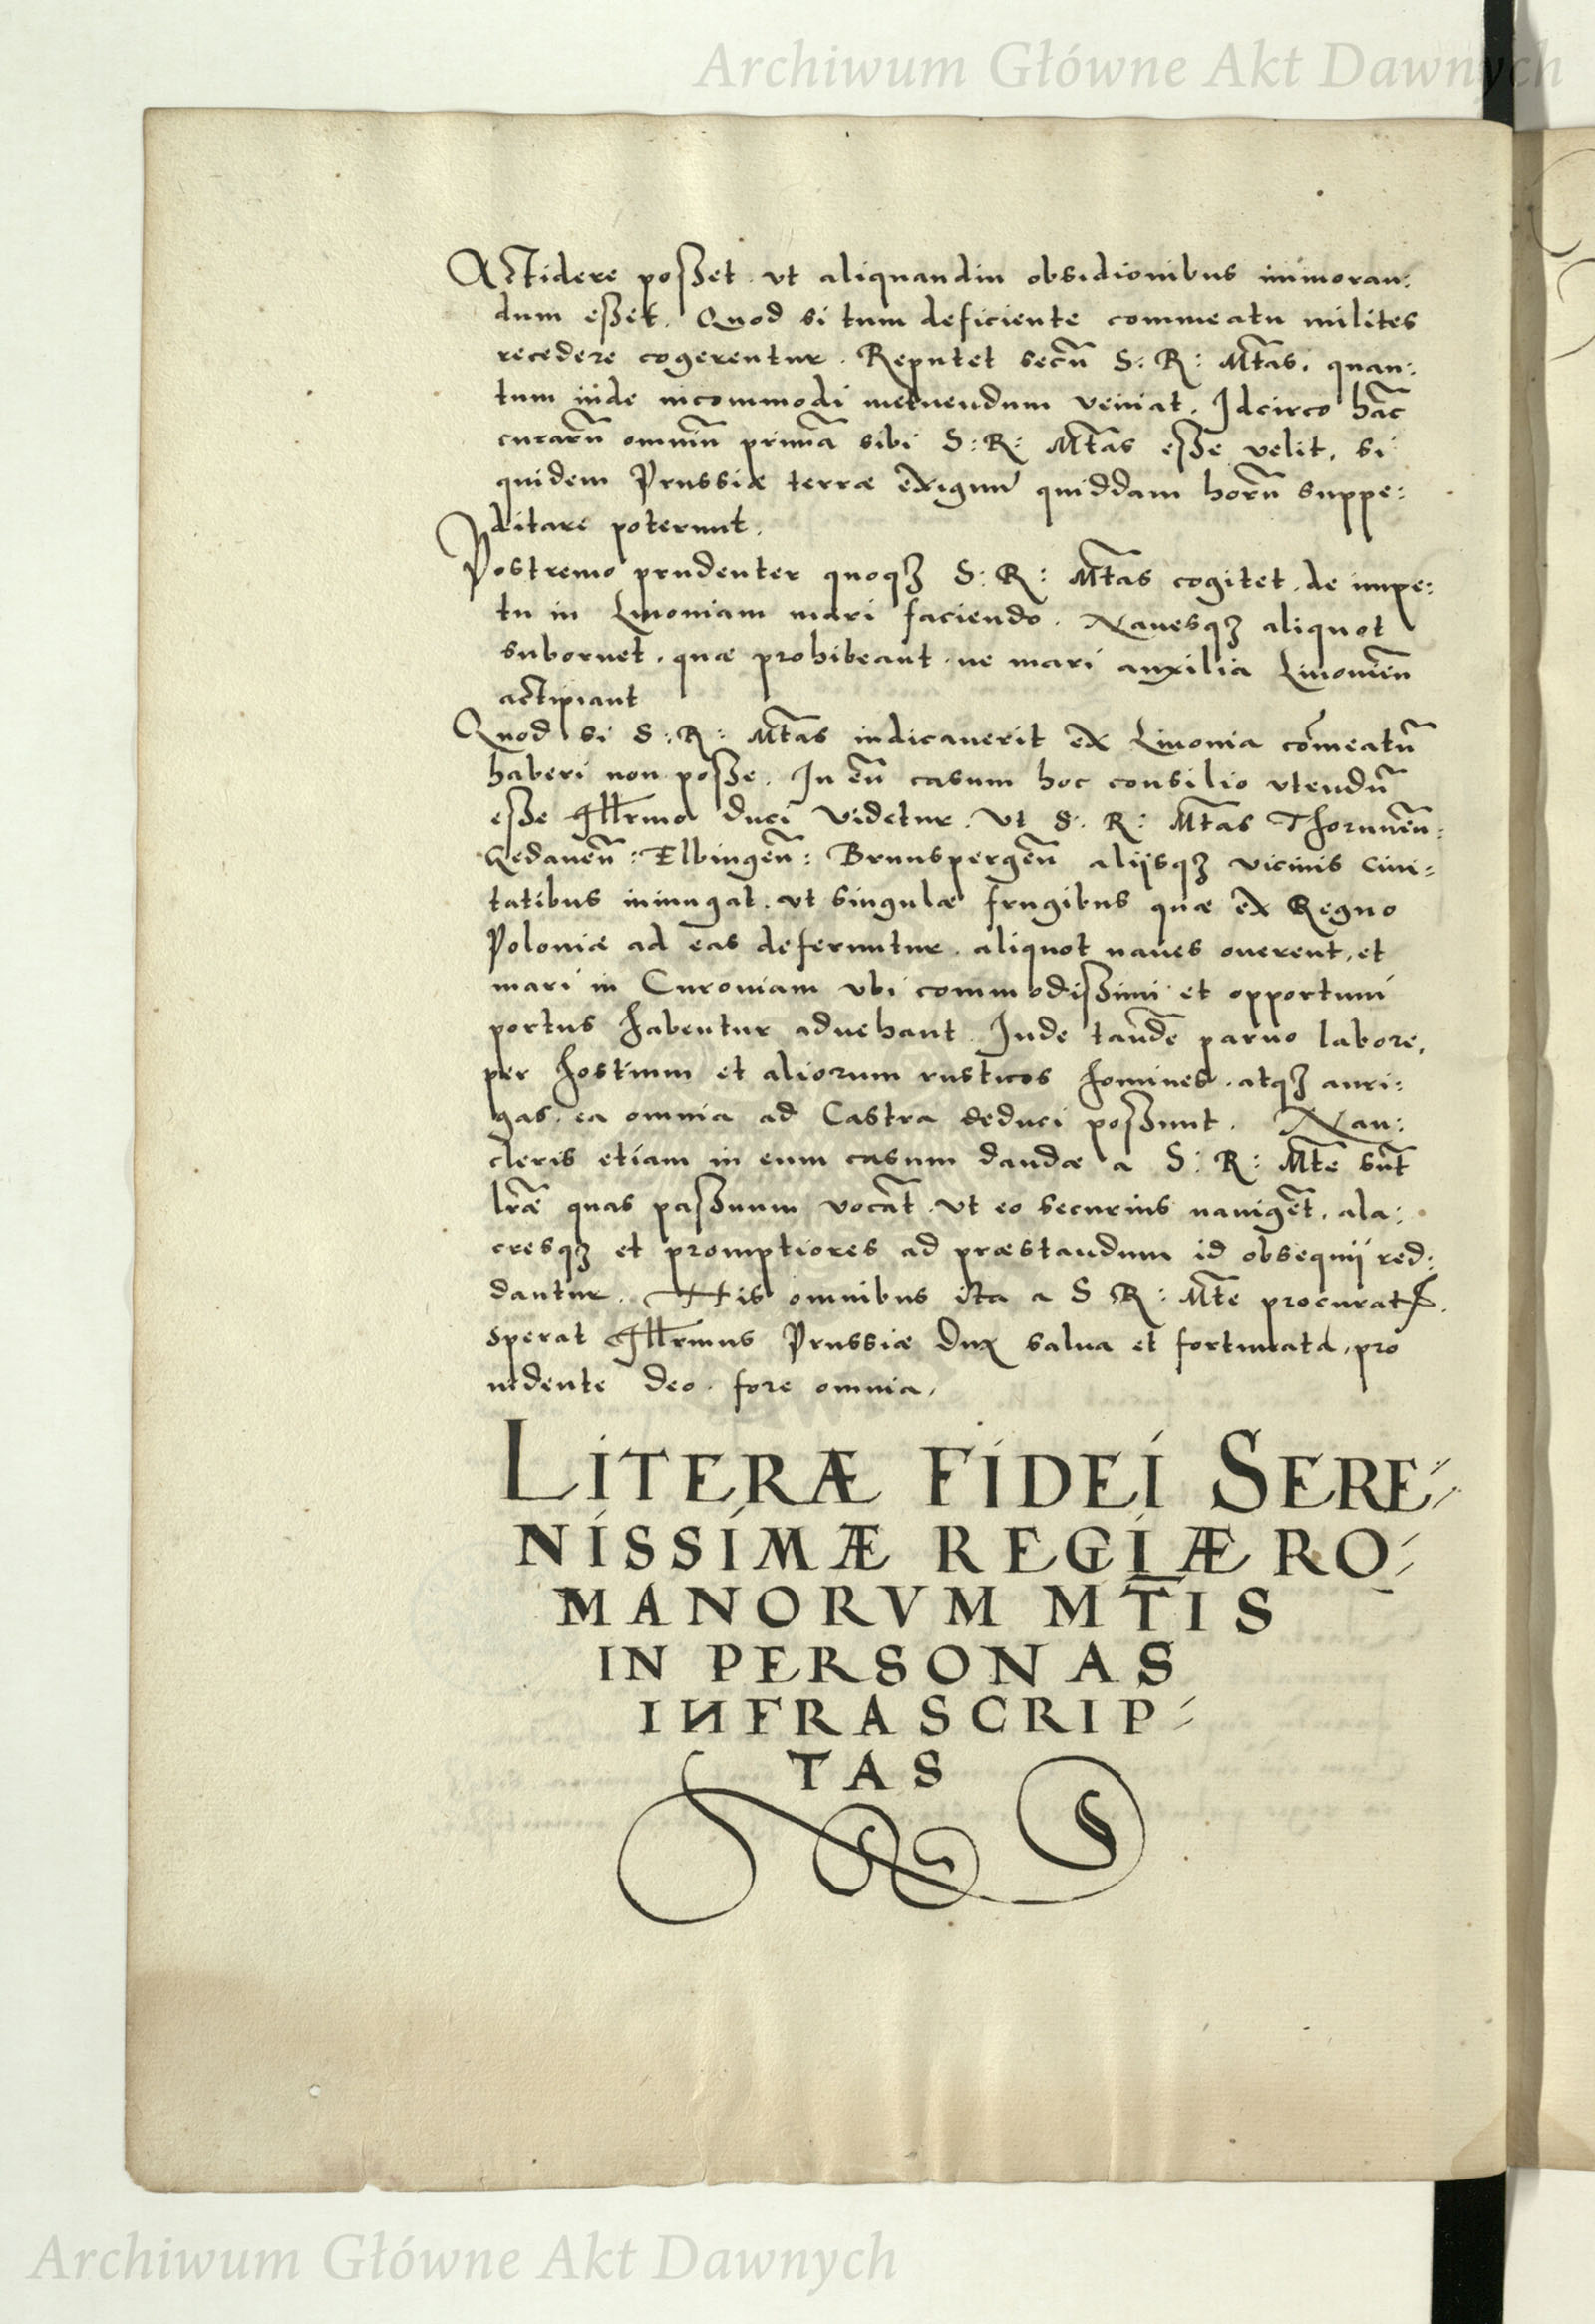 Archiwum Główne Akt Dawnych
Accidere posset. vt aliquandiu obsidionibus immoran:
dum esset. Quod si tum deficiente commeatu milites
recedere cogerentur. Reputet secū S: R: Mtas. quan:
tum inde incommodi metuendum veniat. Idcirco hāc
curarū omniū primā sibi S: R: Mtas esse velit, si
quidem Prussiæ terræ exiguū quiddam horū suppe:
ditare poterunt.
Postremo prudenter quoqꝫ S: R: Mtas cogitet. de impe:
tu in Liuoniam mari faciendo. Nauesqꝫ aliquot
subornet. quæ prohibeant. ne mari auxilia Liuonień
accipiant
Quod si S: R: Mtas indicauerit ex Liuonia cōmeatū
haberi non posse. In eū casum hoc consilio vtendū
esse Illrmo duci videtur. Vt S. R: Mtas Thorunēn:
Gedanēn: Elbingēn: Brunspergēn aliisqꝫ vicinis ciui:
tatibus iniungat. vt singulæ frugibus quæ ex Regno
Poloniæ ad eas deferuntur. aliquot naues onerent, et
mari in Curoniam vbi commodissimi et opportuni
portus habentur aduehant. Inde tandē paruo labore,
per hostium et aliorum rusticos homines. atqꝫ auri:
gas. ea omnia ad Castra deduci possunt. Nau:
cleris etiam in eum casum dandæ a S: R: Mte sūt
lræ quas passuum vocāt. Vt eo securius nauigēt, ala:
cresqꝫ et promptiores ad præstandum id obsequii red:
dantur. His omnibus ita a S R: Mte procuratis.
sperat Illrmus Prussiæ Dux salua et fortunata, pro
uidente deo. fore omnia,
LITERÆ FIDEI SERE:
NISSIMÆ REGIÆ RO:
MANORVM MTIS
IN PERSONAS
INFRASCRIP:
TAS
Archiwum Główne Akt Dawnych